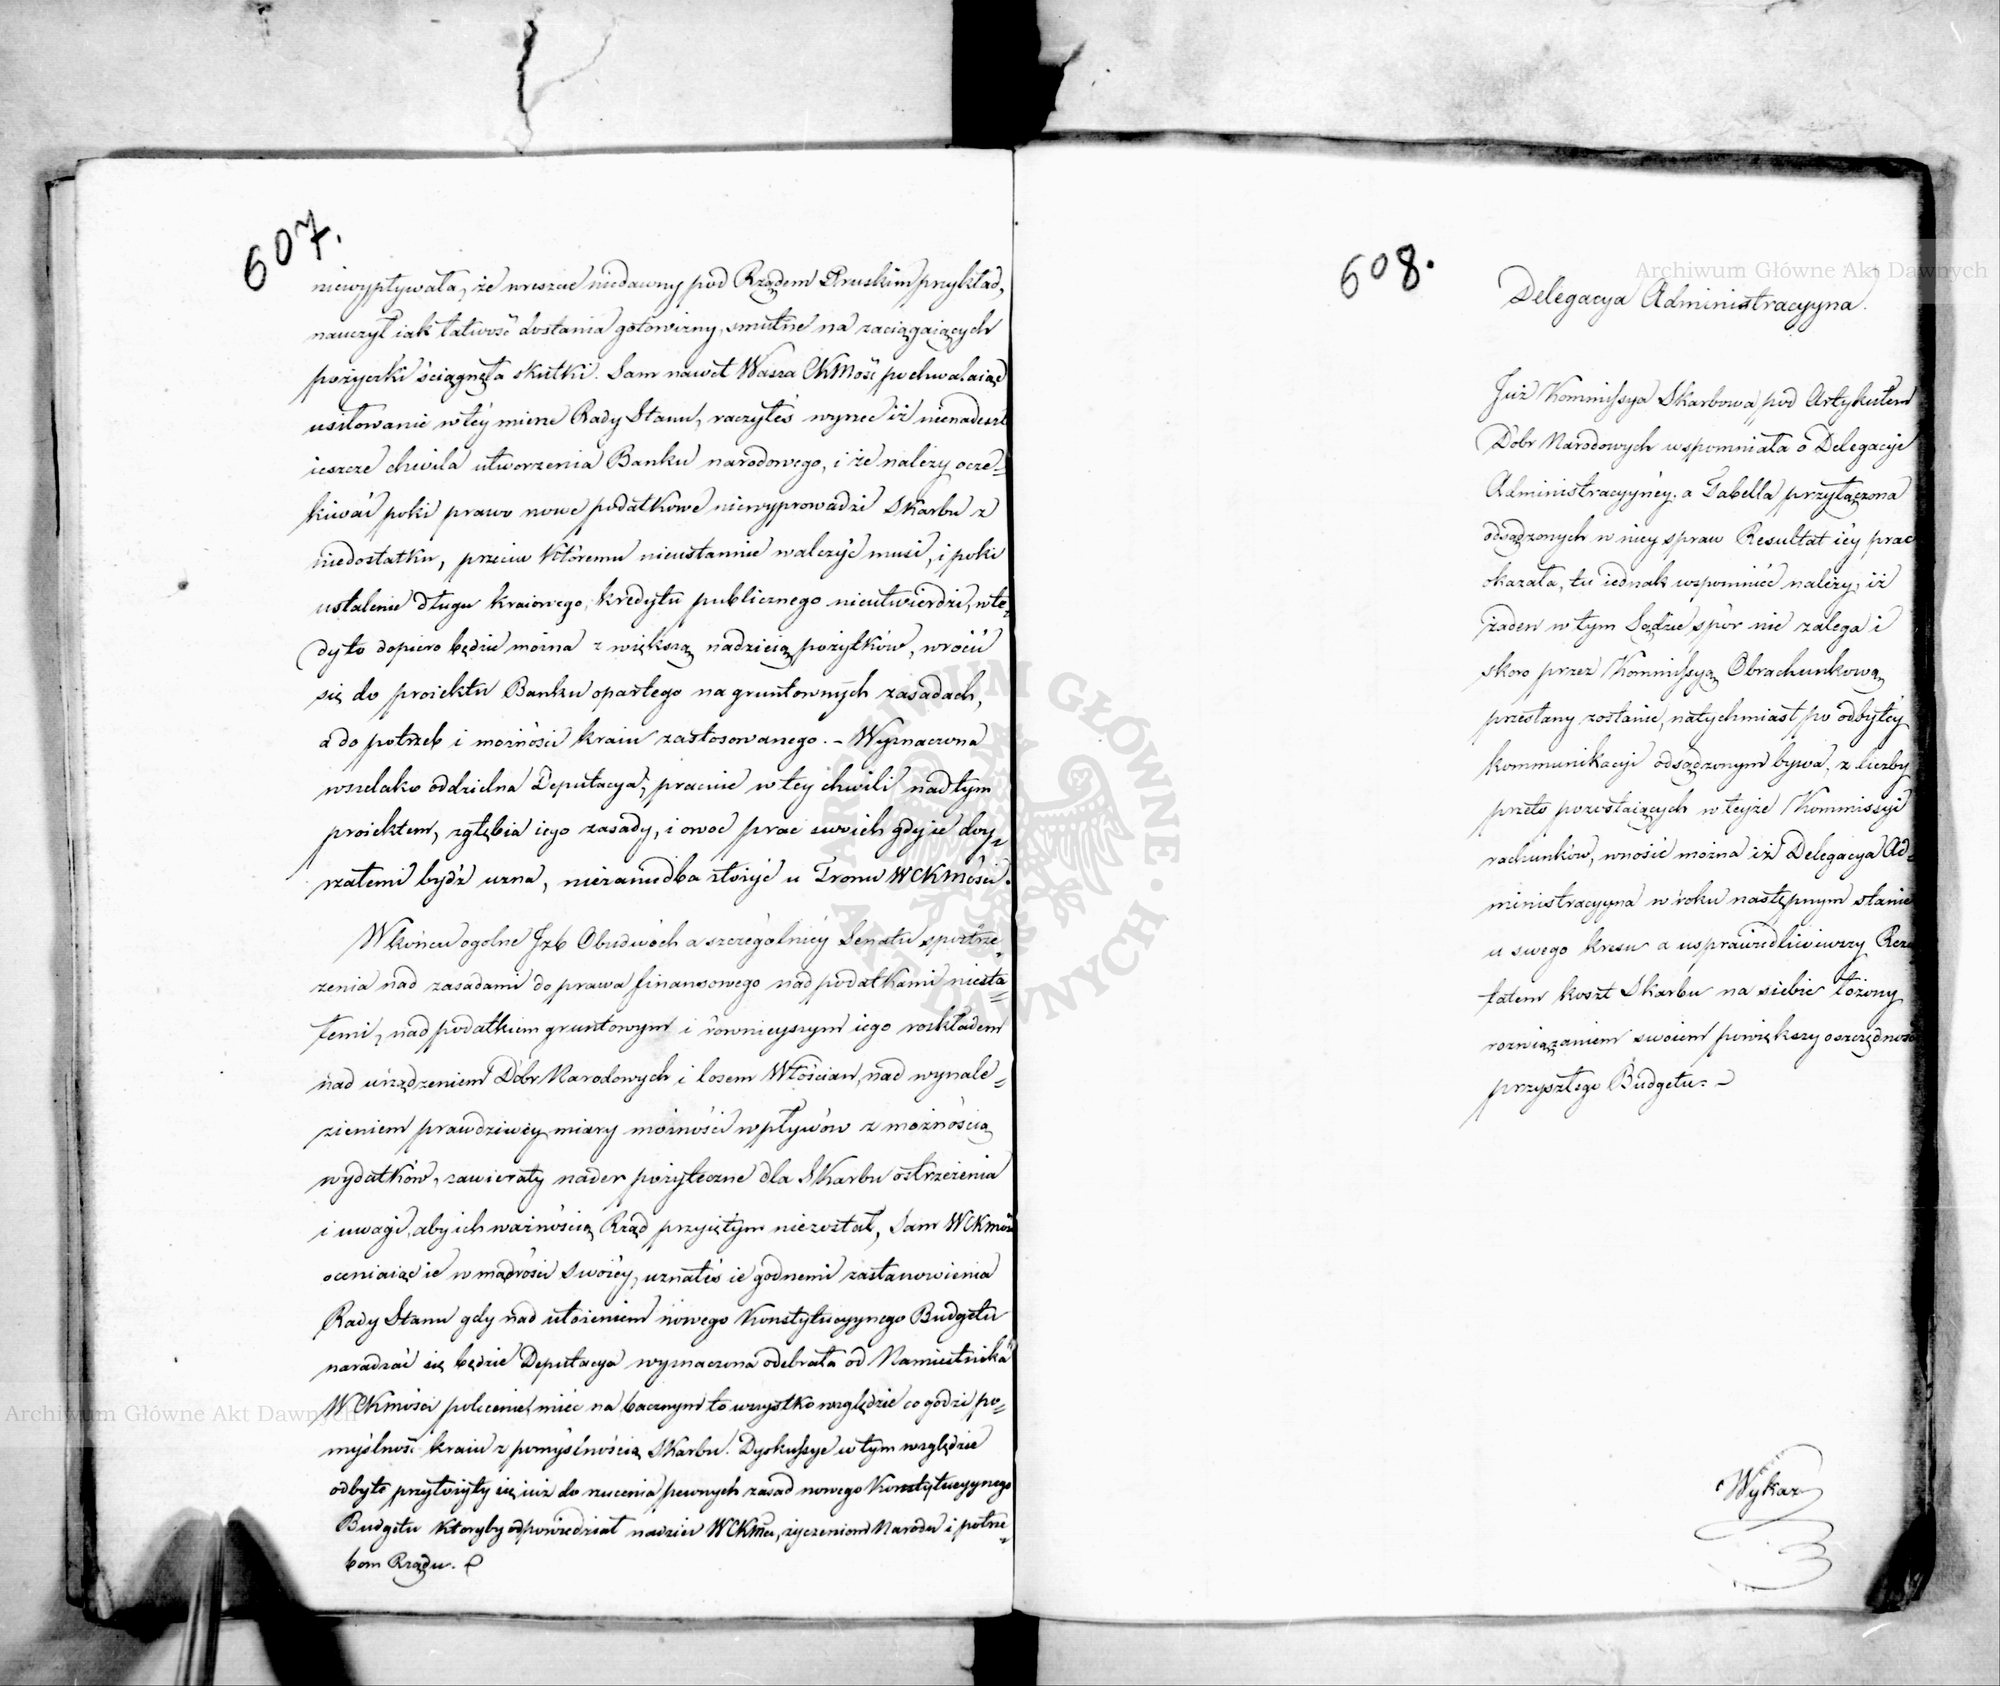 607.
niewypływała, że wreszcie niedawny pod Rządem Pruskim przykład,
nauczył iak łatwość dostania gotowizny, smutne na zaciągaiących
pożyczki ściągnęła skutki. Sam nawet Wasza CKMość pochwalaiąc
usiłowanie w tey mierze Rady Stanu, raczyłeś wyrzec iż nienadeszła
ieszcze chwila utworzenia Banku narodowego, i że należy ocze=
kiwać poki prawo nowe podatkowe niewyprowadzi Skarbu z
niedostatku, przeciw któremu nieustannie walczyć musi, i poki
ustalenie długu kraiowego, kredytu publicznego nieutwierdzi, wte=
dy to dopiero będzie można z większą nadzieią pożytków, wrócić
się do proiektu Banku opartego na gruntownych zasadach,
a do potrzeb i możności kraiu zastosowanego. – Wyznaczona
wszelako oddzielna Deputacya, pracuie w tey chwili nad tym
proiektem, zgłębia iego zasady, i owoc prac swoich gdy ie doy=
rzałemi bydź uzna, niezaniedba złożyć u Tronu WCKMości.
W końcu ogolne Izb Obudwóch a szczególniey Senatu spostrze=
żenia nad zasadami do prawa finansowego nad podatkami niesta=
łemi, nad podatkiem gruntowym i równieyszym iego rozkładem
nad urządzeniem Dóbr Narodowych i losem Włościan, nad wynale=
zieniem prawdziwey miary możności wpływów z możnością
wydatków, zawierały nader pożyteczne dla Skarbu ostrzeżenia
i uwagi, aby ich ważnością Rząd przyiętym niezostał, Sam WCKMość
oceniaiąc ie w mądrości swoiey, uznałeś ie godnemi zastanowienia
Rady Stanu gdy nad ułożeniem nowego Konstytucyynego Budgetu
naradzać się będzie Deputacya wyznaczona odebrała od Namiestnika
WCKMości polecenie, mieć na bacznym to wszystko względzie co godzi po=
myślność kraiu z pomyślnością Skarbu. Dyskussye w tym względzie
odbyte przyłożyły się iuż do rzucenia pewnych zasad nowego Konstytucyynego
Budgetu któryby odpowiedział nadziei WCKMci, życzeniom Narodu i potrze=
bom Rządu.
608.
Delegacya Administracyyna.
Już Kommissya Skarbowa pod Artykułem
Dobr Narodowych wspomniała o Delegacyi
Administracyyney, a Tabella przyłączona
odsądzonych w niey spraw Resultat iey prac
okazała, tu iednak wspomnieć należy, iż
żaden w tym Sądzie spór nie zalega i
skoro przez Kommissyą Obrachunkową
przesłany zostanie, natychmiast po odbytey
kommunikacyi odsądzonym bywa, z liczby
przeto pozostaiących w teyże Kommissyi
rachunków, wnosić można iż Delegacya Ad=
ministracyyna w roku następnym stanie
u swego kresu a usprawiedliwiwszy Rezu
tatem koszt Skarbu na siebie łożony
rozwiązaniem swoiem powiększy oszczędność
przyszłego Budgetu. –
Wykaz
Archiwum Główne Akt Dawnych
Archiwum Główne Akt Dawnych
ARCHIWUM GŁÓWNE AKT DAWNYCH